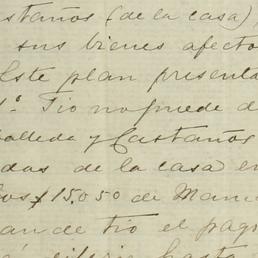 staños (de la casa)
sus bienes afecto
Este plan presenta
1º. Tio no puede d
olleda y Castaños
das de la casa en
los $15.050 de Manu
an de tio el pago